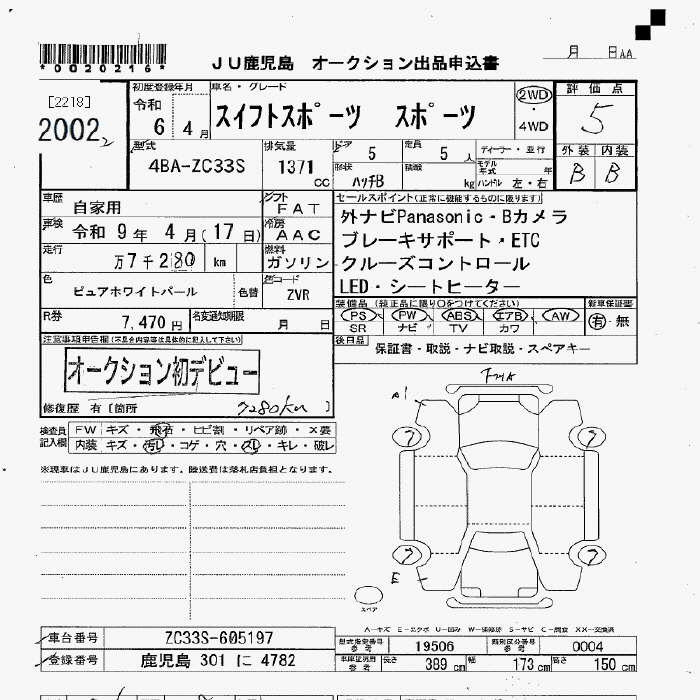 *0020216*
JU鹿児島 オークション出品申込書
月 日 AA
[2218]
2002 2
初度登録年月
令和
6 4 月
車名・グレード
スイフトスポーツ スポーツ
2WD
・
4WD
評価点
5
外装 内装
B B
型式
4BA-ZC33S
排気量
1371 CC
ドア
5
定員
5 人
ディーラー・並行
形状
ハッチB
積載
kg
モデル年式 年
ハンドル 左・右
車歴
自家用
シフト
FAT
車検
令和 9年 4月(17日)
冷房
AAC
走行
万7千280 km
燃料
ガソリン
色
ピュアホワイトパール
色替
色コード
ZVR
R券
7,470 円
名変通知期限
月 日
セールスポイント(正常に機能するものに限ります)
外ナビPanasonic・Bカメラ
ブレーキサポート・ETC
クルーズコントロール
LED・シートヒーター
装備品(純正品に限り○をつけてください)
PS PW ABS エアB AW
SR ナビ TV カワ
新車保証書
有・無
後日品
保証書・取説・ナビ取説・スペアキー
注意事項申告欄(不具合内容等は具体的に記入して下さい)
オークション初デビュー
修復歴 有[箇所 7280km ]
検査員記入欄
FW キズ・飛石・ヒビ割・リペア跡・X要
内装 キズ・汚れ・コゲ・穴・スレ・キレ・破レ
※現車はJU鹿児島にあります。陸送費は落札店負担となります。
A1
E
スペア
A-キズ E-エクボ U-凹み W-補修跡 S-サビ C-腐食 XX-交換済
車台番号
ZC33S-605197
登録番号
鹿児島 301 に 4782
型式指定番号
参考
19506
類別区分番号
参考
0004
車庫証明用
参考
長さ
389 cm
幅
173 cm
高さ
150 cm